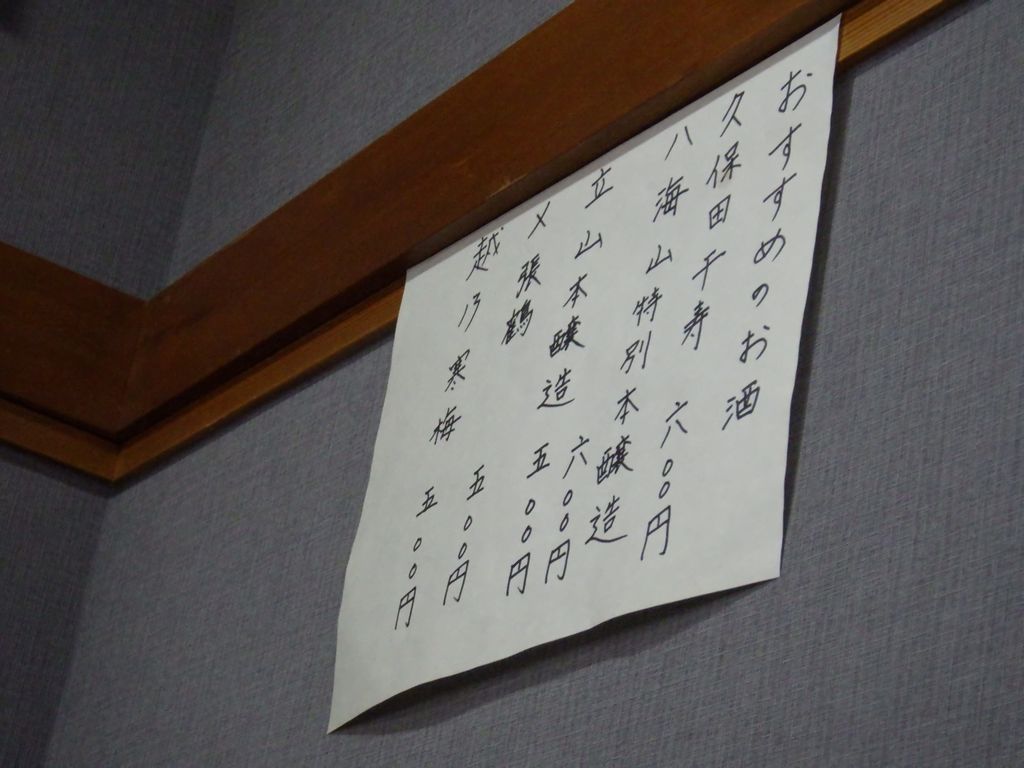 おすすめのお酒
久保田千寿 六〇〇円
八海山特別本醸造
六〇〇円
立山本醸造 五〇〇円
〆張鶴 五〇〇円
越乃寒梅 五〇〇円